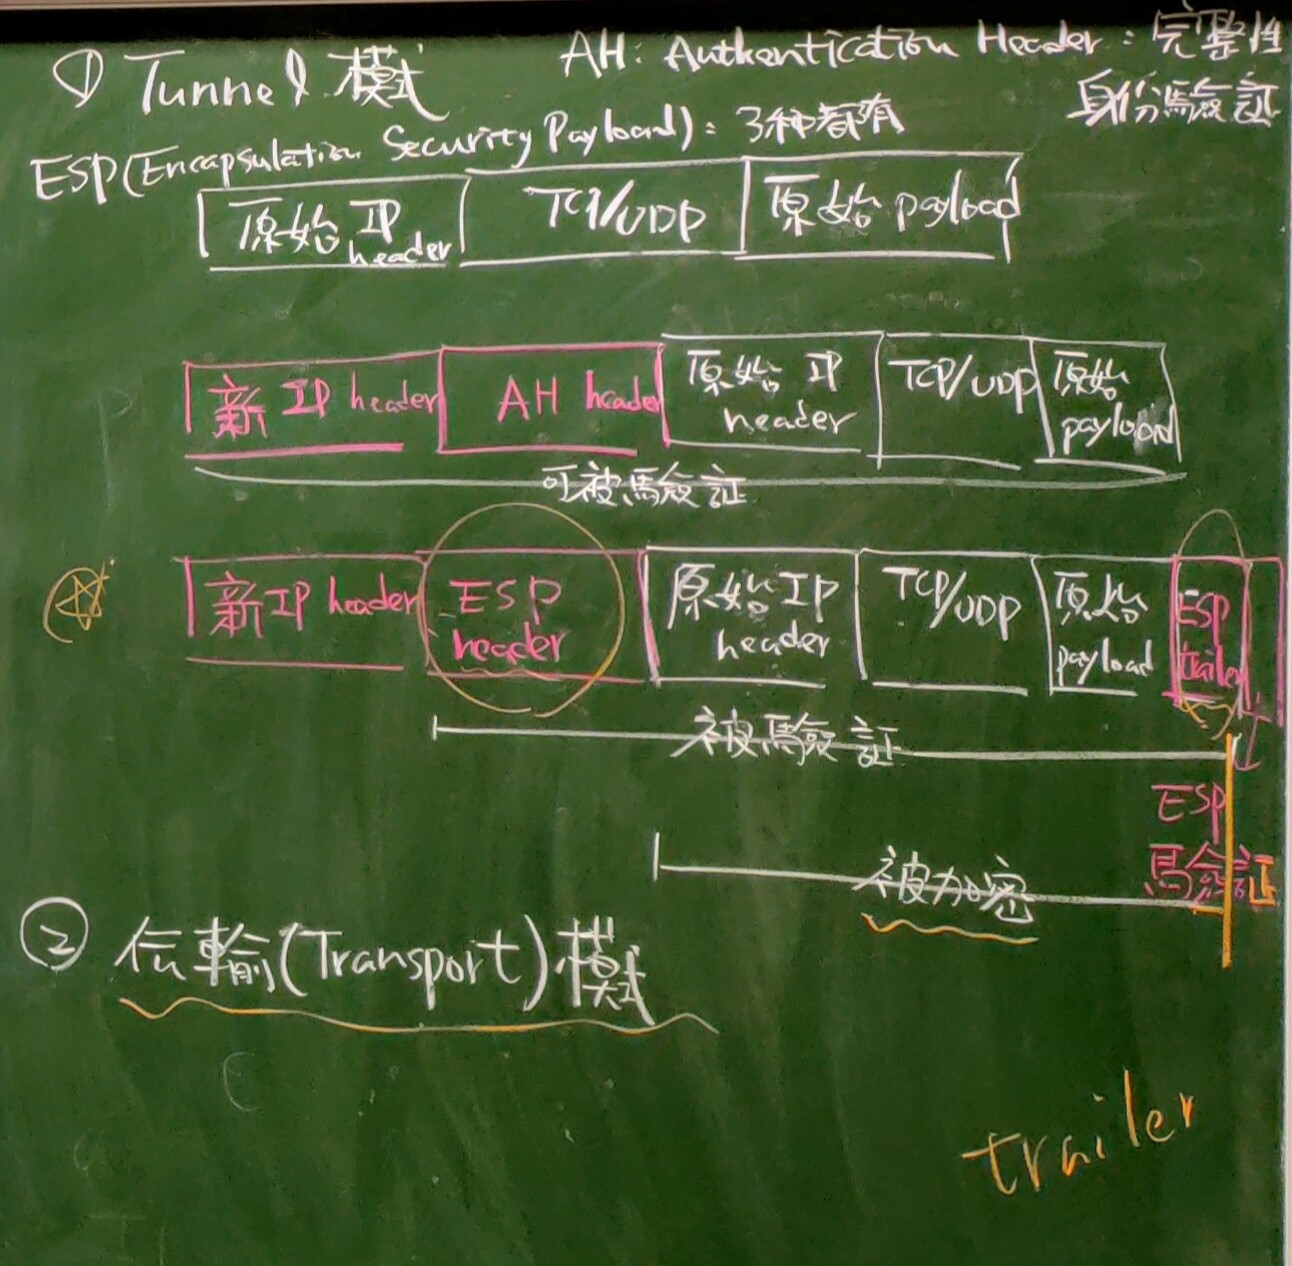 ① Tunnel 模式
AH: Authentication Header: 完整性
身份驗証
ESP(Encapsulation Security Payload): 3种都有
原始 IP header TCP/UDP 原始 payload
新 IP header AH header 原始 IP header TCP/UDP 原始 payload
可被驗証
新 IP header ESP header 原始 IP header TCP/UDP 原始 payload ESP trailer
被驗証
ESP 驗証
被加密
② 伝輸(Transport)模式
trailer